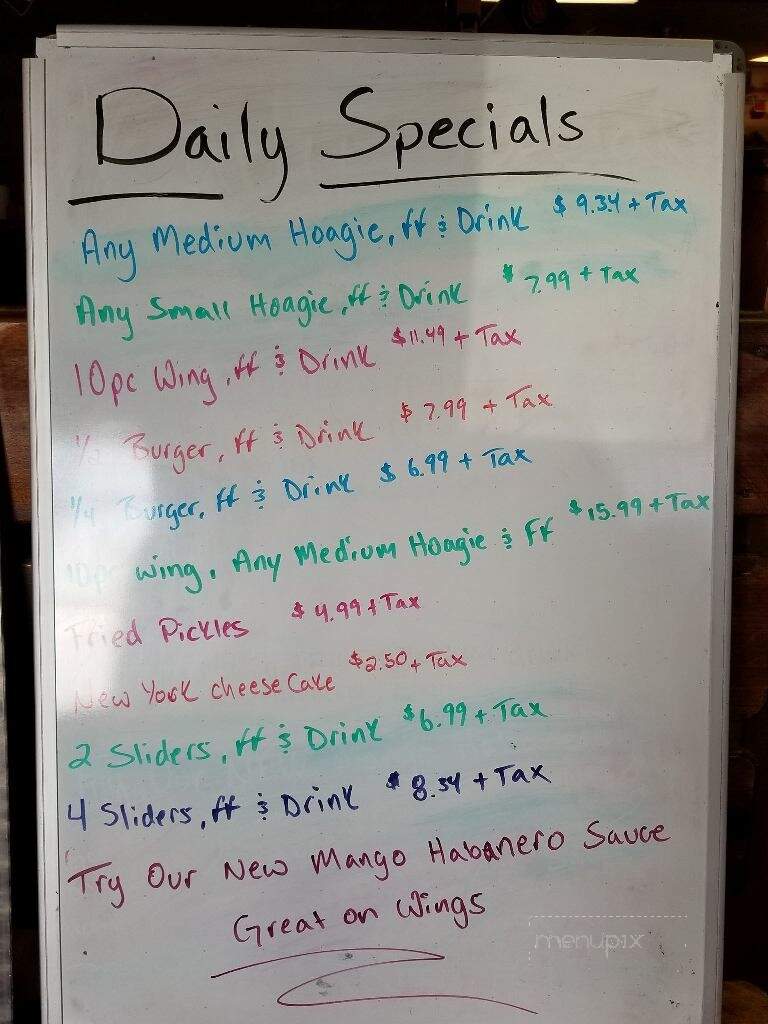 Daily Specials
Any Medium Hoagie, ff & Drink $ 9.34 + Tax
Any Small Hoagie, ff & Drink $ 7.99 + Tax
10pc Wing, ff & Drink $11.49 + Tax
1/2 Burger, ff & Drink $ 7.99 + Tax
1/4 Burger, ff & Drink $ 6.99 + Tax
10pc wing, Any Medium Hoagie & ff $15.99 + Tax
Fried Pickles $4.99 + Tax
New York cheese Cake $2.50 + Tax
2 Sliders, ff & Drink $6.99 + Tax
4 Sliders, ff & Drink $ 8.34 + Tax
Try Our New Mango Habanero Sauce
Great on Wings
menupix